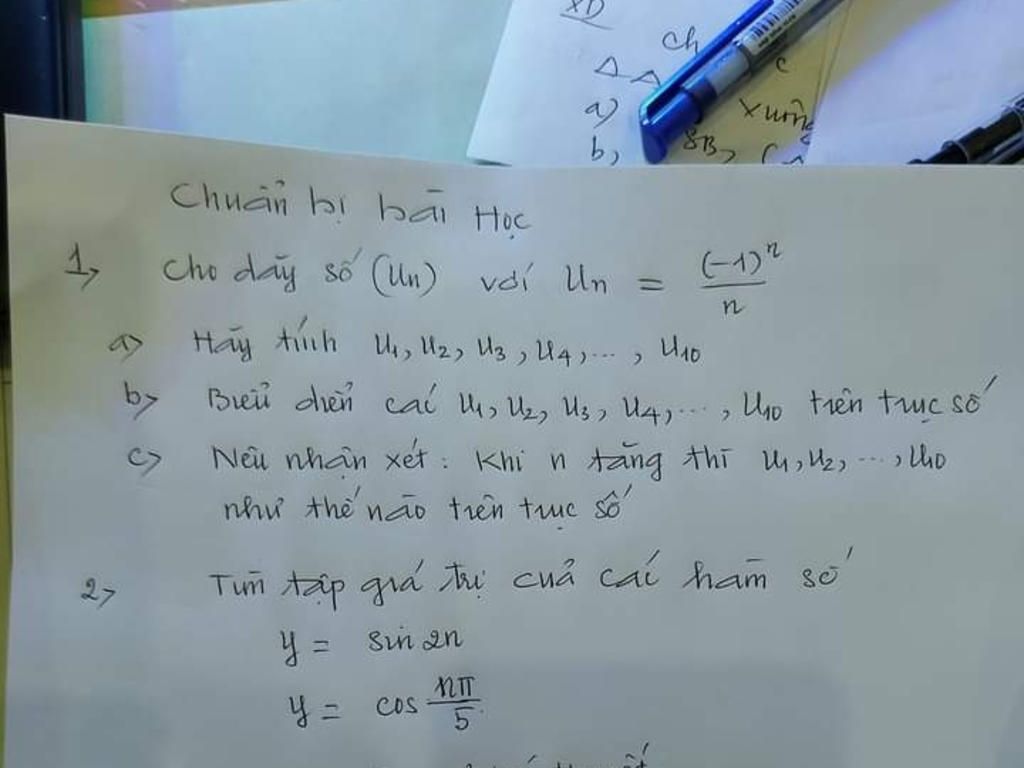 XD
Ch
c
a)
xuống
b,
SB,
Chuẩn bị bài Học
1, Cho dãy số (Un) với Un = (-1)^n / n
a> Hãy tính U1, U2, U3, U4, ..., U10
b> Biểu diễn các U1, U2, U3, U4, ..., U10 trên trục số
c> Nêu nhận xét: Khi n tăng thì U1, U2, ..., U10
như thế nào trên trục số
2> Tìm tập giá trị của các hàm số
y = sin 2n
y = cos nπ/5